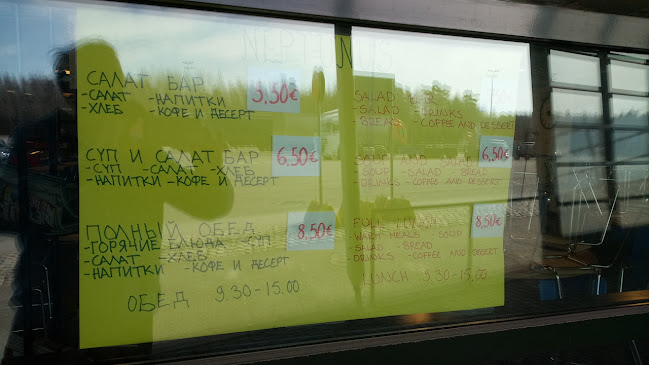 NEPTUNUS
САЛАТ БАР 5,50€
-САЛАТ -НАПИТКИ
-ХЛЕБ -КОФЕ И ДЕСЕРТ
СУП И САЛАТ БАР 6,50€
-СУП -САЛАТ -ХЛЕБ
-НАПИТКИ -КОФЕ И ДЕСЕРТ
ПОЛНЫЙ ОБЕД 8,50€
-ГОРЯЧИЕ БЛЮДА -СУП
-САЛАТ -ХЛЕБ
-НАПИТКИ -КОФЕ И ДЕСЕРТ
ОБЕД 9.30-15.00
SALAD BAR
-SALAD -DRINKS
-BREAD -COFFEE AND DESSERT
SOUP AND SALAD BAR 6,50€
-SOUP -SALAD -BREAD
-DRINKS -COFFEE AND DESSERT
FULL LUNCH 8,50€
-WARM MEALS -SOUP
-SALAD -BREAD
-DRINKS -COFFEE AND DESSERT
LUNCH 9.30-15.00